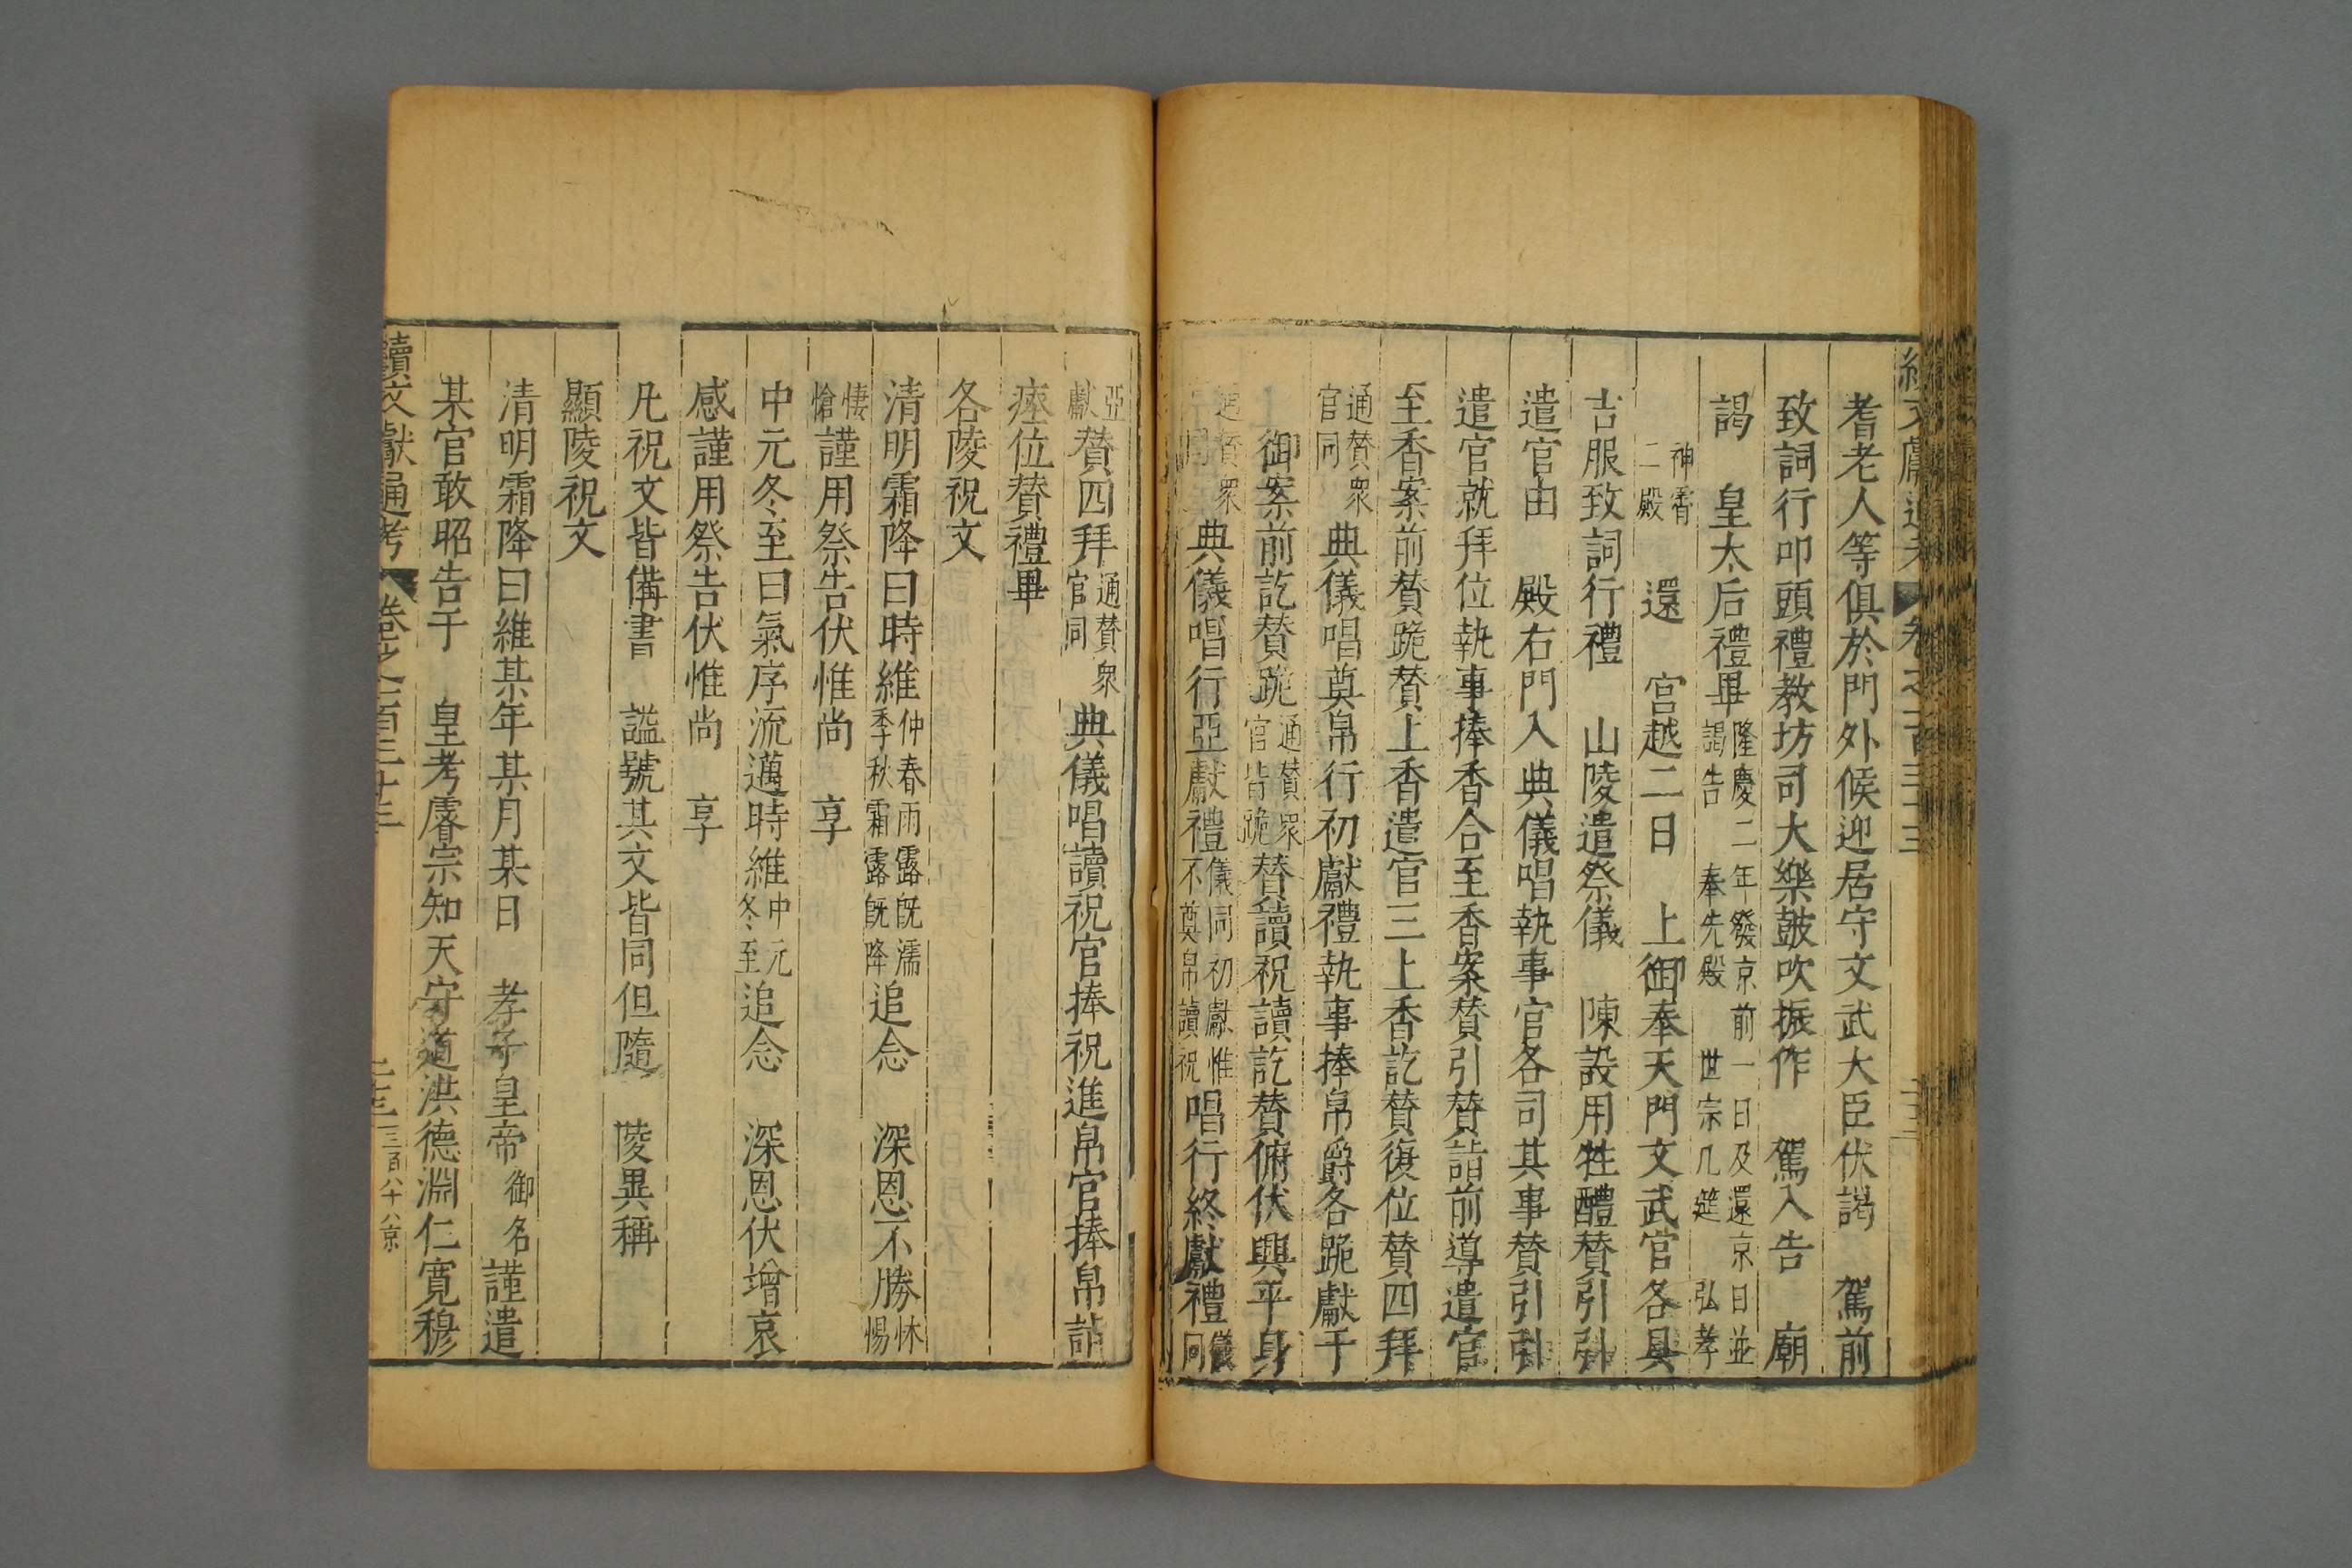 耆老人等俱於門外候迎居守文武大臣伏謁　駕前
致詞行叩頭禮教坊司大樂鼓吹振作　駕入告　廟
謁　皇太后禮畢隆慶二年發京前一日及還京日並謁告　奉先殿　世宗几筵　弘孝
神霄二殿　還　宮越二日　上御奉天門文武官各具
吉服致詞行禮　山陵遣祭儀　陳設用牲醴贊引引
遣官由　殿右門入典儀唱執事官各司其事贊引引
遣官就拜位執事捧香合至香案贊引贊詣前導遣官
至香案前贊跪贊上香遣官三上香訖贊復位贊四拜
通贊眾官同典儀唱奠帛行初獻禮執事捧帛爵各跪獻于
御案前訖贊跪通贊眾官皆跪贊讀祝讀訖贊俯伏興平身
通贊眾官同典儀唱行亞獻禮儀同初獻惟不奠帛讀祝唱行終獻禮儀同
亞獻贊四拜通贊眾官同典儀唱讀祝官捧祝進帛官捧帛詣
瘞位贊禮畢
各陵祝文
清明霜降曰時維仲春雨露既濡季秋霜露既降追念　深恩不勝怵惕
悽愴謹用祭告伏惟尚　享
中元冬至曰氣序流邁時維中元冬至追念　深恩伏增哀
感謹用祭告伏惟尚　享
凡祝文皆備書　謚號其文皆同但隨　陵異稱
顯陵祝文
清明霜降曰維某年某月某日　孝子皇帝御名謹遣
某官敢昭告于　皇考睿宗知天守道洪德淵仁寬穆
續文獻通考　卷之一百三十三　二十三　三百八十八　京